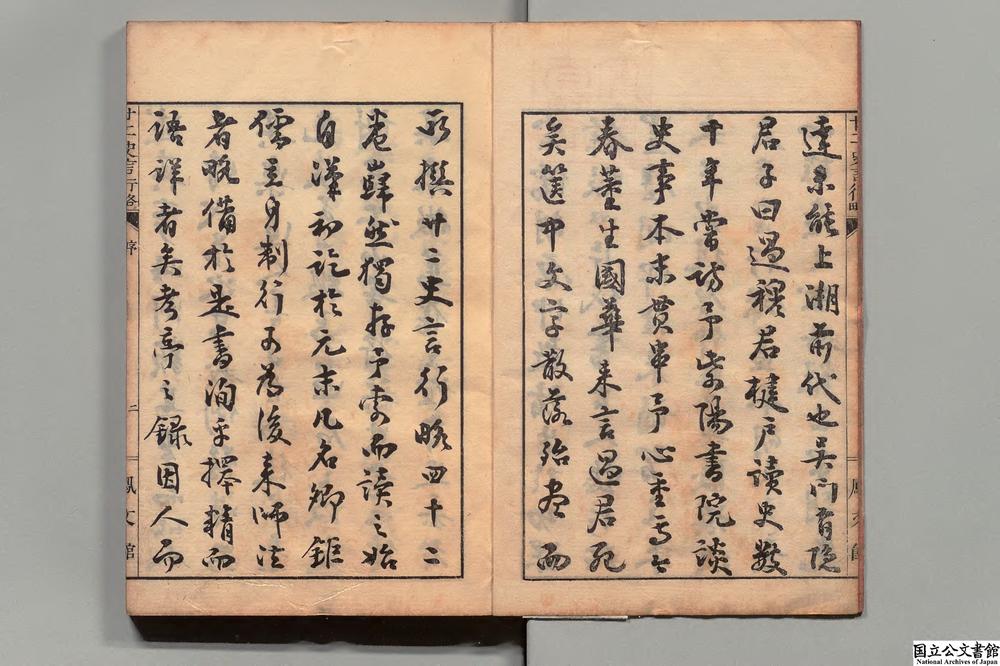 廿二史言行略
鳳文館
達未能上溯前代也吳門有隱
君子曰過穆君楗戶讀史數
十年嘗訪予紫陽書院談
史事本末貫串予心重焉今
春董生國華来言過君死
矣篋中文字散落殆盡而
所撰廿二史言行略四十二
卷巋然獨存予索而讀之始
自漢初訖於元末凡名卿鉅
儒立身制行可為後来師法
者略備於是書洵乎擇精而
語詳者矣考亭之錄因人而
廿二史言行略 序 二 鳳文館
国立公文書館
National Archives of Japan